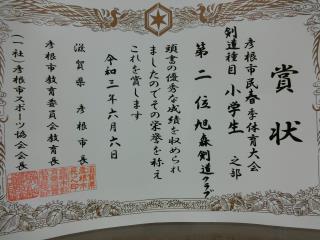 賞状
彦根市民春季体育大会
剣道種目 小学生 之部
第二位 旭森剣道クラブ
頭書の優秀な成績を収められ
ましたのでその栄誉を称え
これを賞します
令和三年六月六日
滋賀県彦根市長
彦根市教育委員会教育長
(一社)彦根市スポーツ協会会長